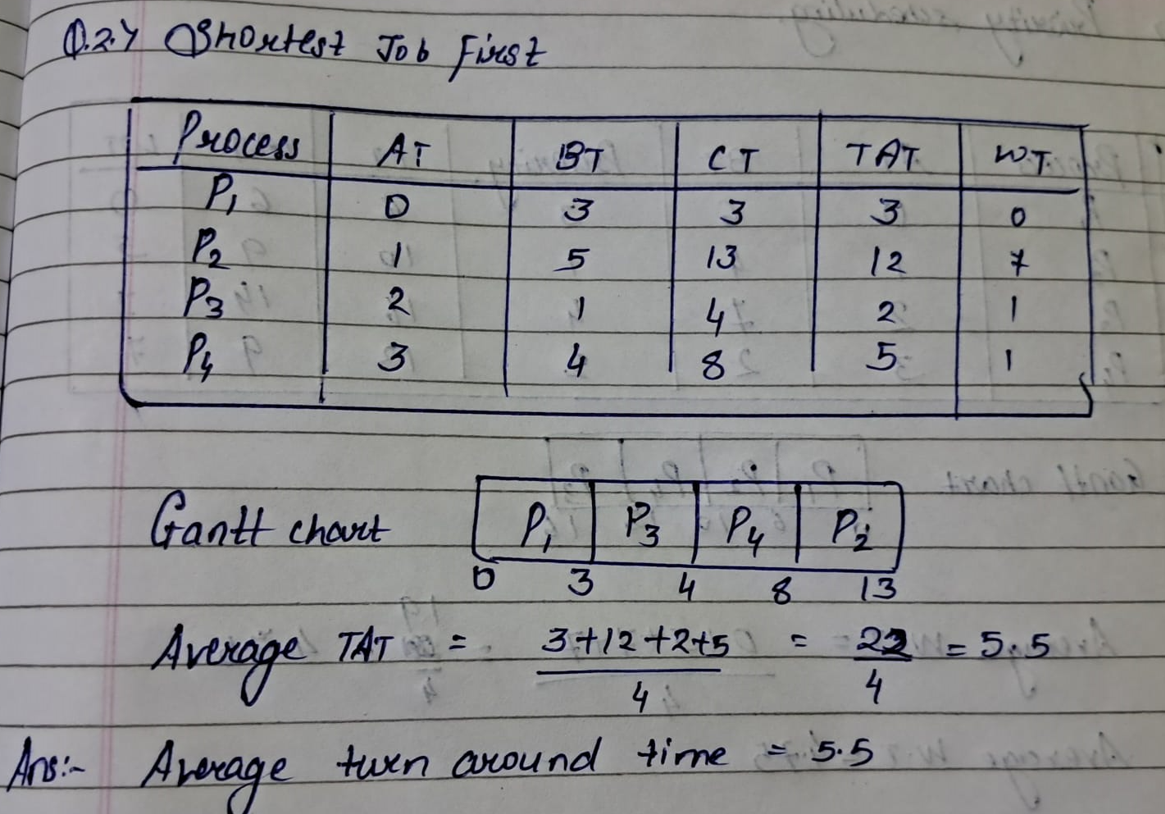 Q.2.> Shortest Job First
Process AT BT CT TAT W.T.
P1 0 3 3 3 0
P2 1 5 13 12 7
P3 2 1 4 2 1
P4 3 4 8 5 1
Gantt chart P1 P3 P4 P2
0 3 4 8 13
Average TAT = 3+12+2+5 / 4 = 22 / 4 = 5.5
Ans:- Average turn around time = 5.5